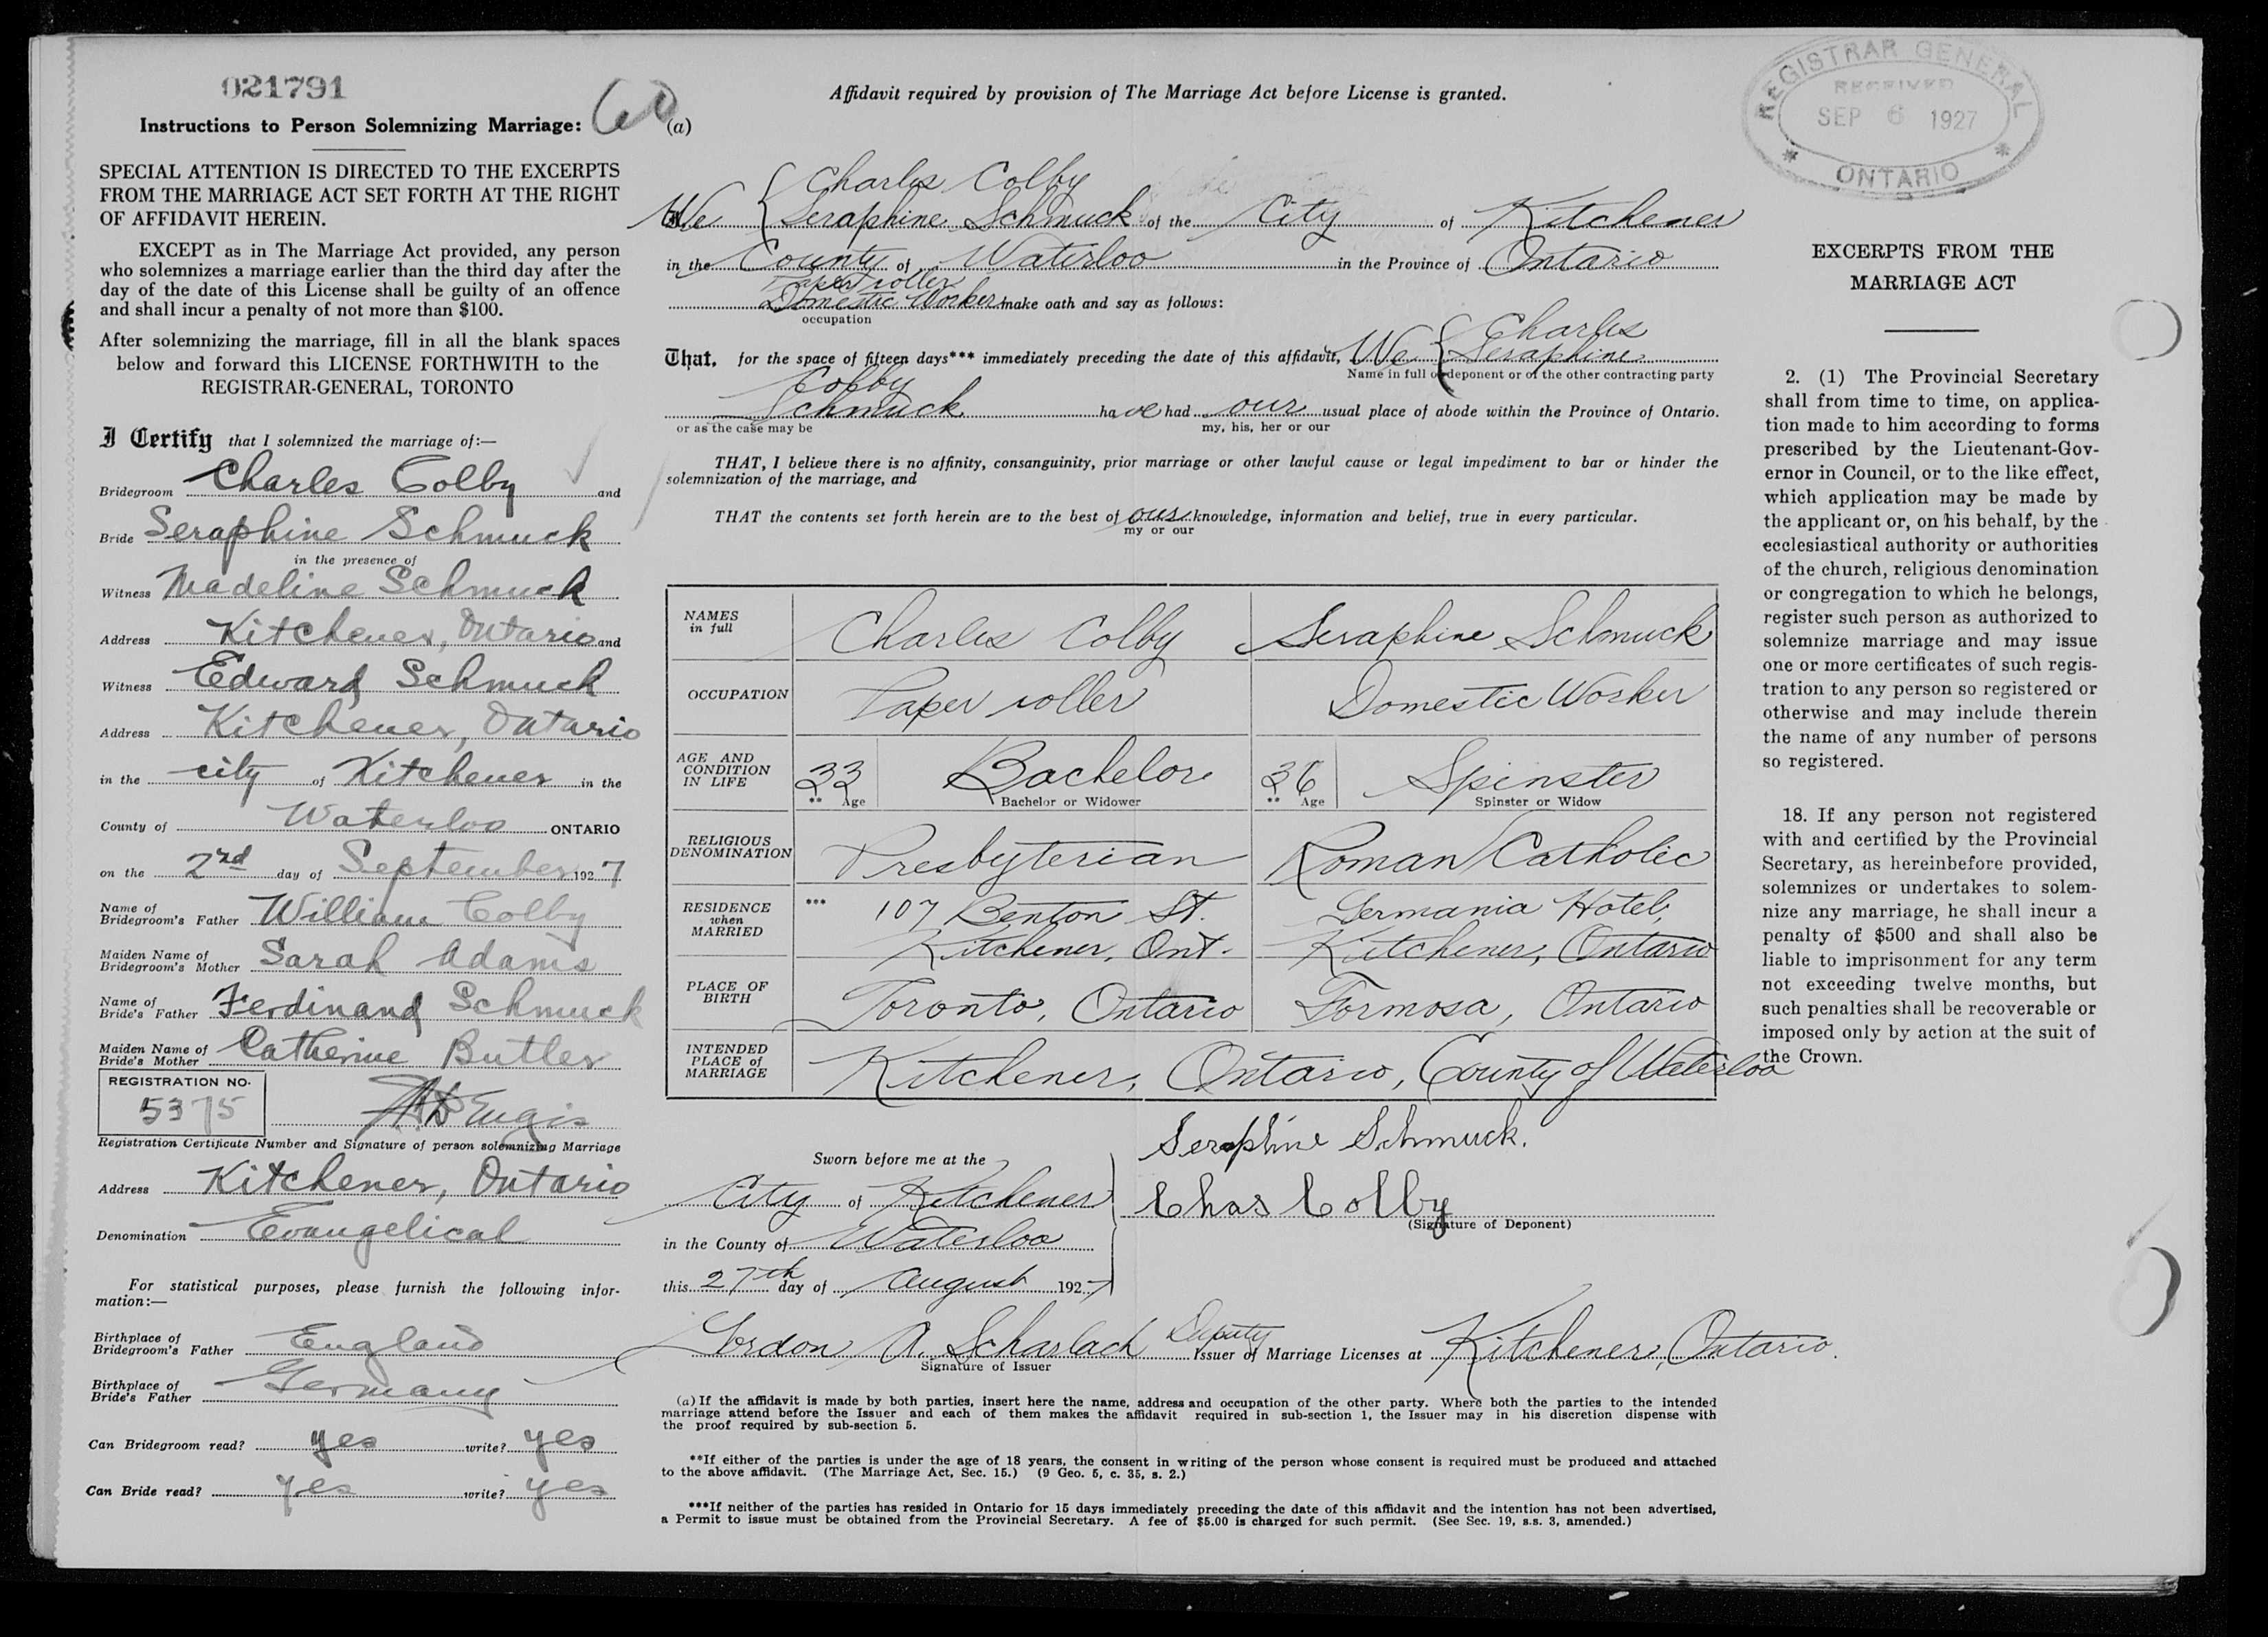 021791
Instructions to Person Solemnizing Marriage:
60
SPECIAL ATTENTION IS DIRECTED TO THE EXCERPTS
FROM THE MARRIAGE ACT SET FORTH AT THE RIGHT
OF AFFIDAVIT HEREIN.
EXCEPT as in The Marriage Act provided, any person
who solemnizes a marriage earlier than the third day after the
day of the date of this License shall be guilty of an offence
and shall incur a penalty of not more than $100.
After solemnizing the marriage, fill in all the blank spaces
below and forward this LICENSE FORTHWITH to the
REGISTRAR-GENERAL, TORONTO
I Certify that I solemnized the marriage of:—
Bridegroom Charles Colby and
Bride Seraphine Schmuck
in the presence of
Witness Madeline Schmuck
Address Kitchener, Ontario and
Witness Edward Schmuck
Address Kitchener, Ontario
in the city of Kitchener in the
County of Waterloo ONTARIO
on the 2nd day of September 1927
Name of
Bridegroom's Father William Colby
Maiden Name of
Bridegroom's Mother Sarah Adams
Name of
Bride's Father Ferdinand Schmuck
Maiden Name of
Bride's Mother Catherine Butler
REGISTRATION NO.
5375
Registration Certificate Number and Signature of person solemnizing Marriage
Address Kitchener, Ontario
Denomination Evangelical
For statistical purposes, please furnish the following infor-
mation:—
Birthplace of
Bridegroom's Father England
Birthplace of
Bride's Father Germany
Can Bridegroom read? yes write? yes
Can Bride read? yes write? yes
Affidavit required by provision of The Marriage Act before License is granted.
(a)
Charles Colby
We { Seraphine Schmuck of the City of Kitchener
in the County of Waterloo in the Province of Ontario
Paper roller
Domestic Worker make oath and say as follows:
occupation
Charles
That, for the space of fifteen days*** immediately preceding the date of this affidavit, We { Seraphine
Name in full of deponent or of the other contracting party
Colby
Schmuck have had our usual place of abode within the Province of Ontario.
or as the case may be my, his, her or our
THAT, I believe there is no affinity, consanguinity, prior marriage or other lawful cause or legal impediment to bar or hinder the
solemnization of the marriage, and
THAT the contents set forth herein are to the best of our knowledge, information and belief, true in every particular.
my or our
NAMES
in full
Charles Colby Seraphine Schmuck
OCCUPATION Paper roller Domestic Worker
AGE AND
CONDITION
IN LIFE
33 Bachelor 36 Spinster
** Age Bachelor or Widower ** Age Spinster or Widow
RELIGIOUS
DENOMINATION
Presbyterian Roman Catholic
RESIDENCE
when
MARRIED
*** 107 Benton St. Germania Hotel,
Kitchener, Ont. Kitchener, Ontario
PLACE OF
BIRTH
Toronto, Ontario Formosa, Ontario
INTENDED
PLACE of
MARRIAGE
Kitchener, Ontario, County of Waterloo
Seraphine Schmuck.
Chas Colby
(Signature of Deponent)
Sworn before me at the
City of Kitchener
in the County of Waterloo
this 27th day of August 1927
Gordon A. Scharlach Deputy Issuer of Marriage Licenses at Kitchener, Ontario.
Signature of Issuer
(a) If the affidavit is made by both parties, insert here the name, address and occupation of the other party. Where both the parties to the intended
marriage attend before the Issuer and each of them makes the affidavit required in sub-section 1, the Issuer may in his discretion dispense with
the proof required by sub-section 5.
**If either of the parties is under the age of 18 years, the consent in writing of the person whose consent is required must be produced and attached
to the above affidavit. (The Marriage Act, Sec. 15.) (9 Geo. 5, c. 35, s. 2.)
***If neither of the parties has resided in Ontario for 15 days immediately preceding the date of this affidavit and the intention has not been advertised,
a Permit to issue must be obtained from the Provincial Secretary. A fee of $5.00 is charged for such permit. (See Sec. 19, s.s. 3, amended.)
REGISTRAR GENERAL
RECEIVED
SEP 6 1927
* ONTARIO *
EXCERPTS FROM THE
MARRIAGE ACT
2. (1) The Provincial Secretary
shall from time to time, on applica-
tion made to him according to forms
prescribed by the Lieutenant-Gov-
ernor in Council, or to the like effect,
which application may be made by
the applicant or, on his behalf, by the
ecclesiastical authority or authorities
of the church, religious denomination
or congregation to which he belongs,
register such person as authorized to
solemnize marriage and may issue
one or more certificates of such regis-
tration to any person so registered or
otherwise and may include therein
the name of any number of persons
so registered.
18. If any person not registered
with and certified by the Provincial
Secretary, as hereinbefore provided,
solemnizes or undertakes to solem-
nize any marriage, he shall incur a
penalty of $500 and shall also be
liable to imprisonment for any term
not exceeding twelve months, but
such penalties shall be recoverable or
imposed only by action at the suit of
the Crown.